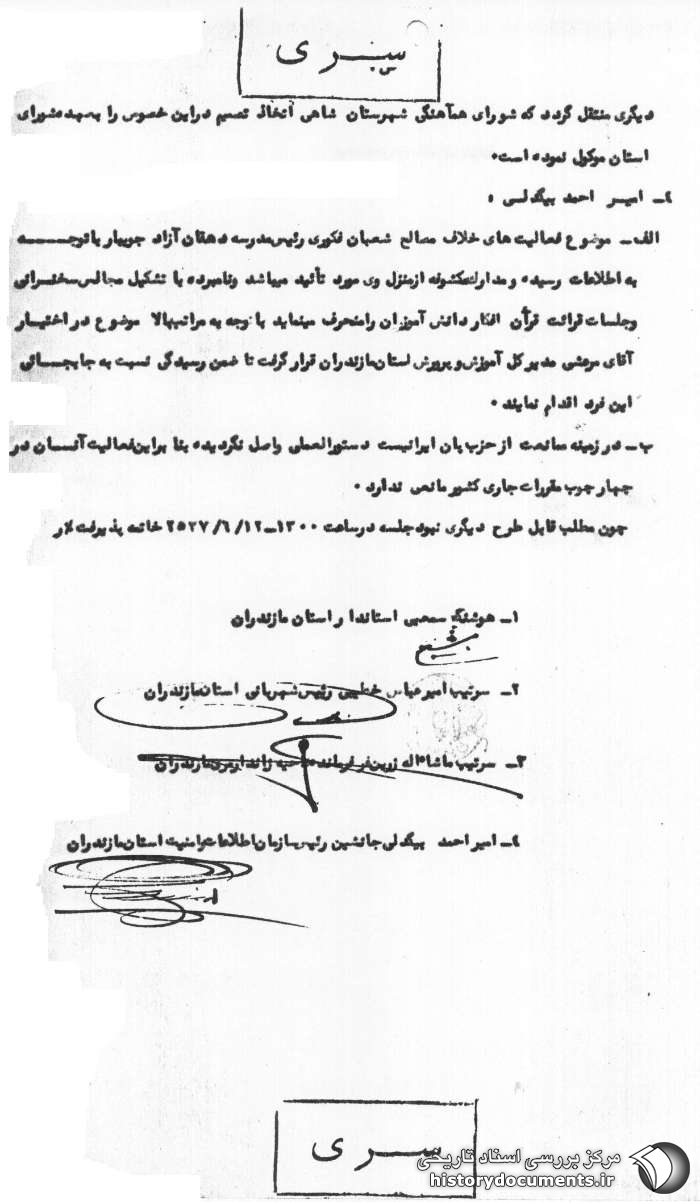 سری
دیگری منتقل گردد که شورای هماهنگی شهرستان شاهی اتخاذ تصمیم دراین خصوص را بعهده شورای
استان موکول نموده است.
٤ـ امیر احمد بیگدلی :
الف ـ موضوع فعالیت های خلاف مصالح شعبان فکوری رئیس مدرسه دهقان آزاد جویبار باتوجـــــه
به اطلاعات رسیده و مدارک مکشوفه ازمنزل وی مورد تأئید میباشد ونامبرده با تشکیل مجالس سخنرانی
وجلسات قرائت قرآن افکار دانش آموزان رامنحرف مینماید باتوجه به مراتب بالا موضوع در اختیـار
آقای مرعشی مدیر کل آموزش و پرورش استان مازندران قرار گرفت تا ضمن رسیدگی نسبت به جابجـــائی
این فرد اقدام نمایند .
ب ـ در زمینه ممانعت از حزب پان ایرانیست دستورالعملی واصل نگردیده بنا براین فعالیت آنـسان در
چهار چوب مقررات جاری کشور مانعی ندارد .
چون مطلب قابل طرح دیگری نبود جلسه درساعت ١٣٠٠ـ١٢/ ٦/ ٢٥٣٧ خاتمه پذیرفت
١ـ هوشنگ سمیعی استاندا ر استان مازندران
٢ـ سرتیپ امیر عباس خطیبی رئیس شهربانی استان مازندران
٣ـ سرتیپ ماشااله زرین فر فرمانده ناحیه ژاندارمری مازندران
٤ـ امیر احمد بیگدلی جانشین رئیس سازمان اطلاعات وامنیت استان مازندران
سری
مرکز بررسی اسناد تاریخی
historydocuments.ir